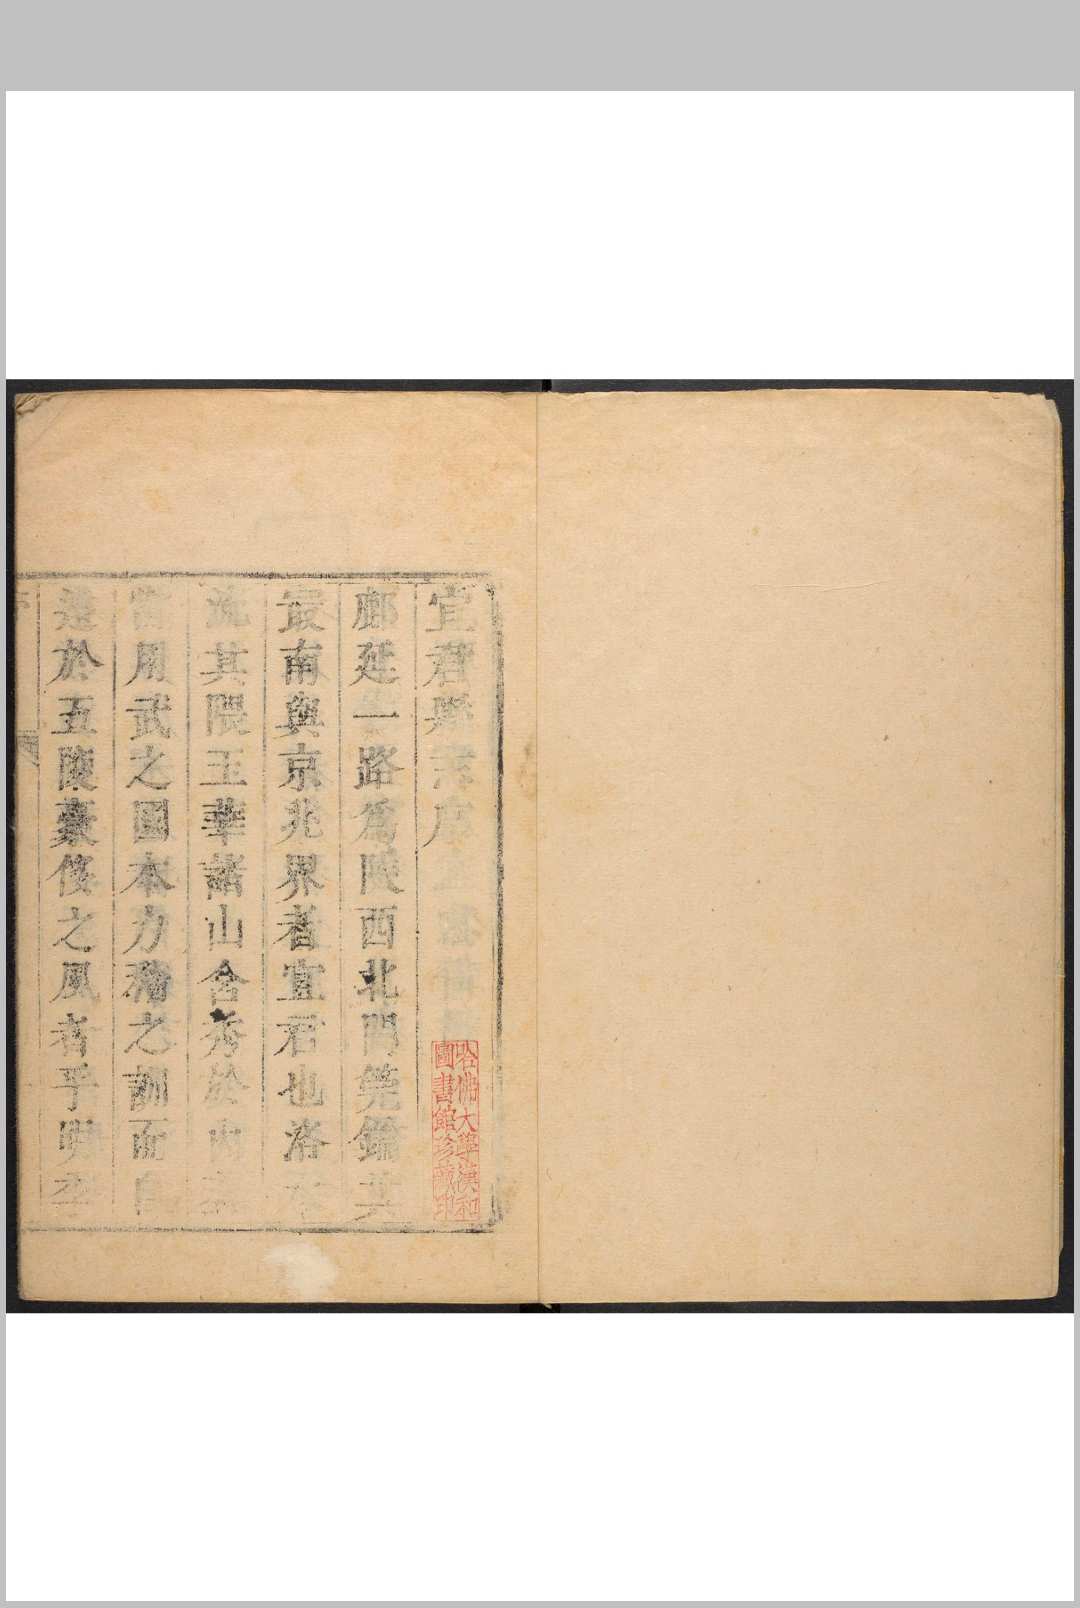 宜君縣志序
鄜延一路爲陝西北門筦鑰其
最南與京兆界者宜君也洛
流其隈玉華諸山含秀於內
用武之國本力穡之訓而自
遠於五陵豪俠之風者乎
哈佛大學漢和
圖書館珍藏印